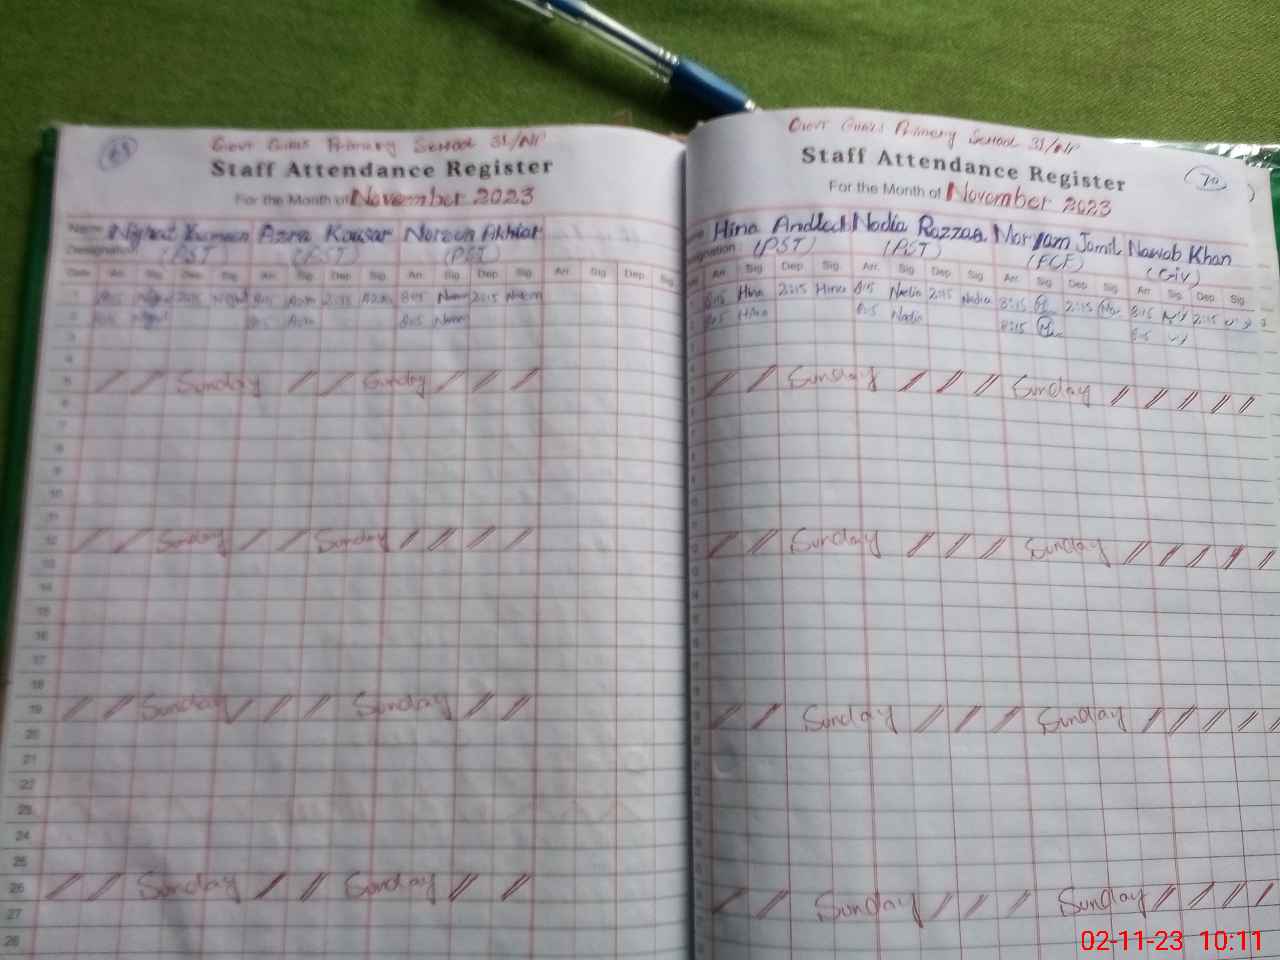 69
Govt Girls Primary School 31/NP
Staff Attendance Register
For the Month of November 2023
Name Nighat Yasmeen Azra Kousar Noreen Akhtar
Designation (PST (PST) (PST)
Date Arr. Sig Dep Sig Arr. Sig Dep Sig Arr. Sig Dep Sig Arr. Sig Dep. Sig
1 8:15 2:15 8:15 Azra 2:15 Azra 8:15 2:15
2 8:15 8:15 Azra 8:15
3
4
5 Sunday Sunday
6
7
8
9
10
11
12 Sunday Sunday
13
14
15
16
17
18
19 Sunday Sunday
20
21
22
23
24
25
26 Sunday Sunday
27
28
70
Govt Girls Primary School 31/NP
Staff Attendance Register
For the Month of November 2023
Hina Andleeb Nadia Razzaq Maryam Jamil Nawab Khan
Designation (PST) (PST) (ECE) (Civ)
Arr. Sig Dep Sig Arr. Sig Dep Sig Arr. Sig Dep Sig Arr. Sig Dep Sig
8:15 Hina 2:15 Hina 8:15 Nadia 2:15 Nadia 8:15 2:15 8:15 2:15
8:15 Hina 8:15 Nadia 8:15 8:15
Sunday Sunday
Sunday Sunday
Sunday Sunday
Sunday Sunday
02-11-23 10:11